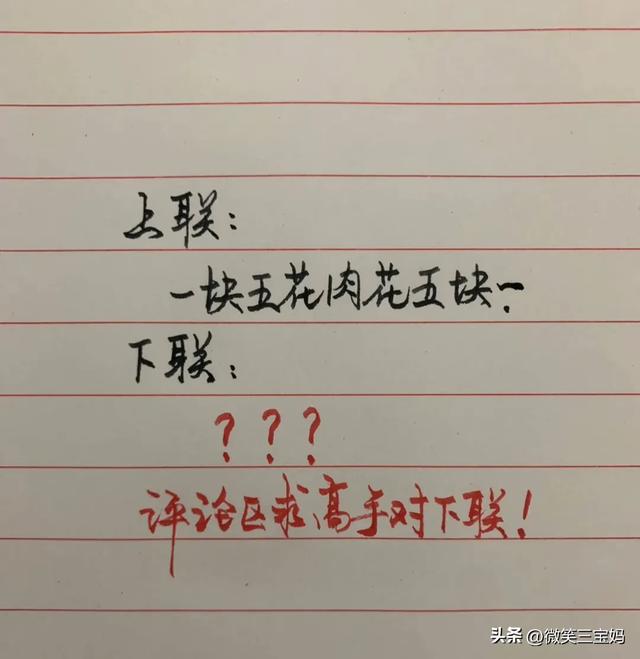 上联：
一块五花肉花五块一
下联：
？？？
评论区求高手对下联！
头条 @微笑三宝妈